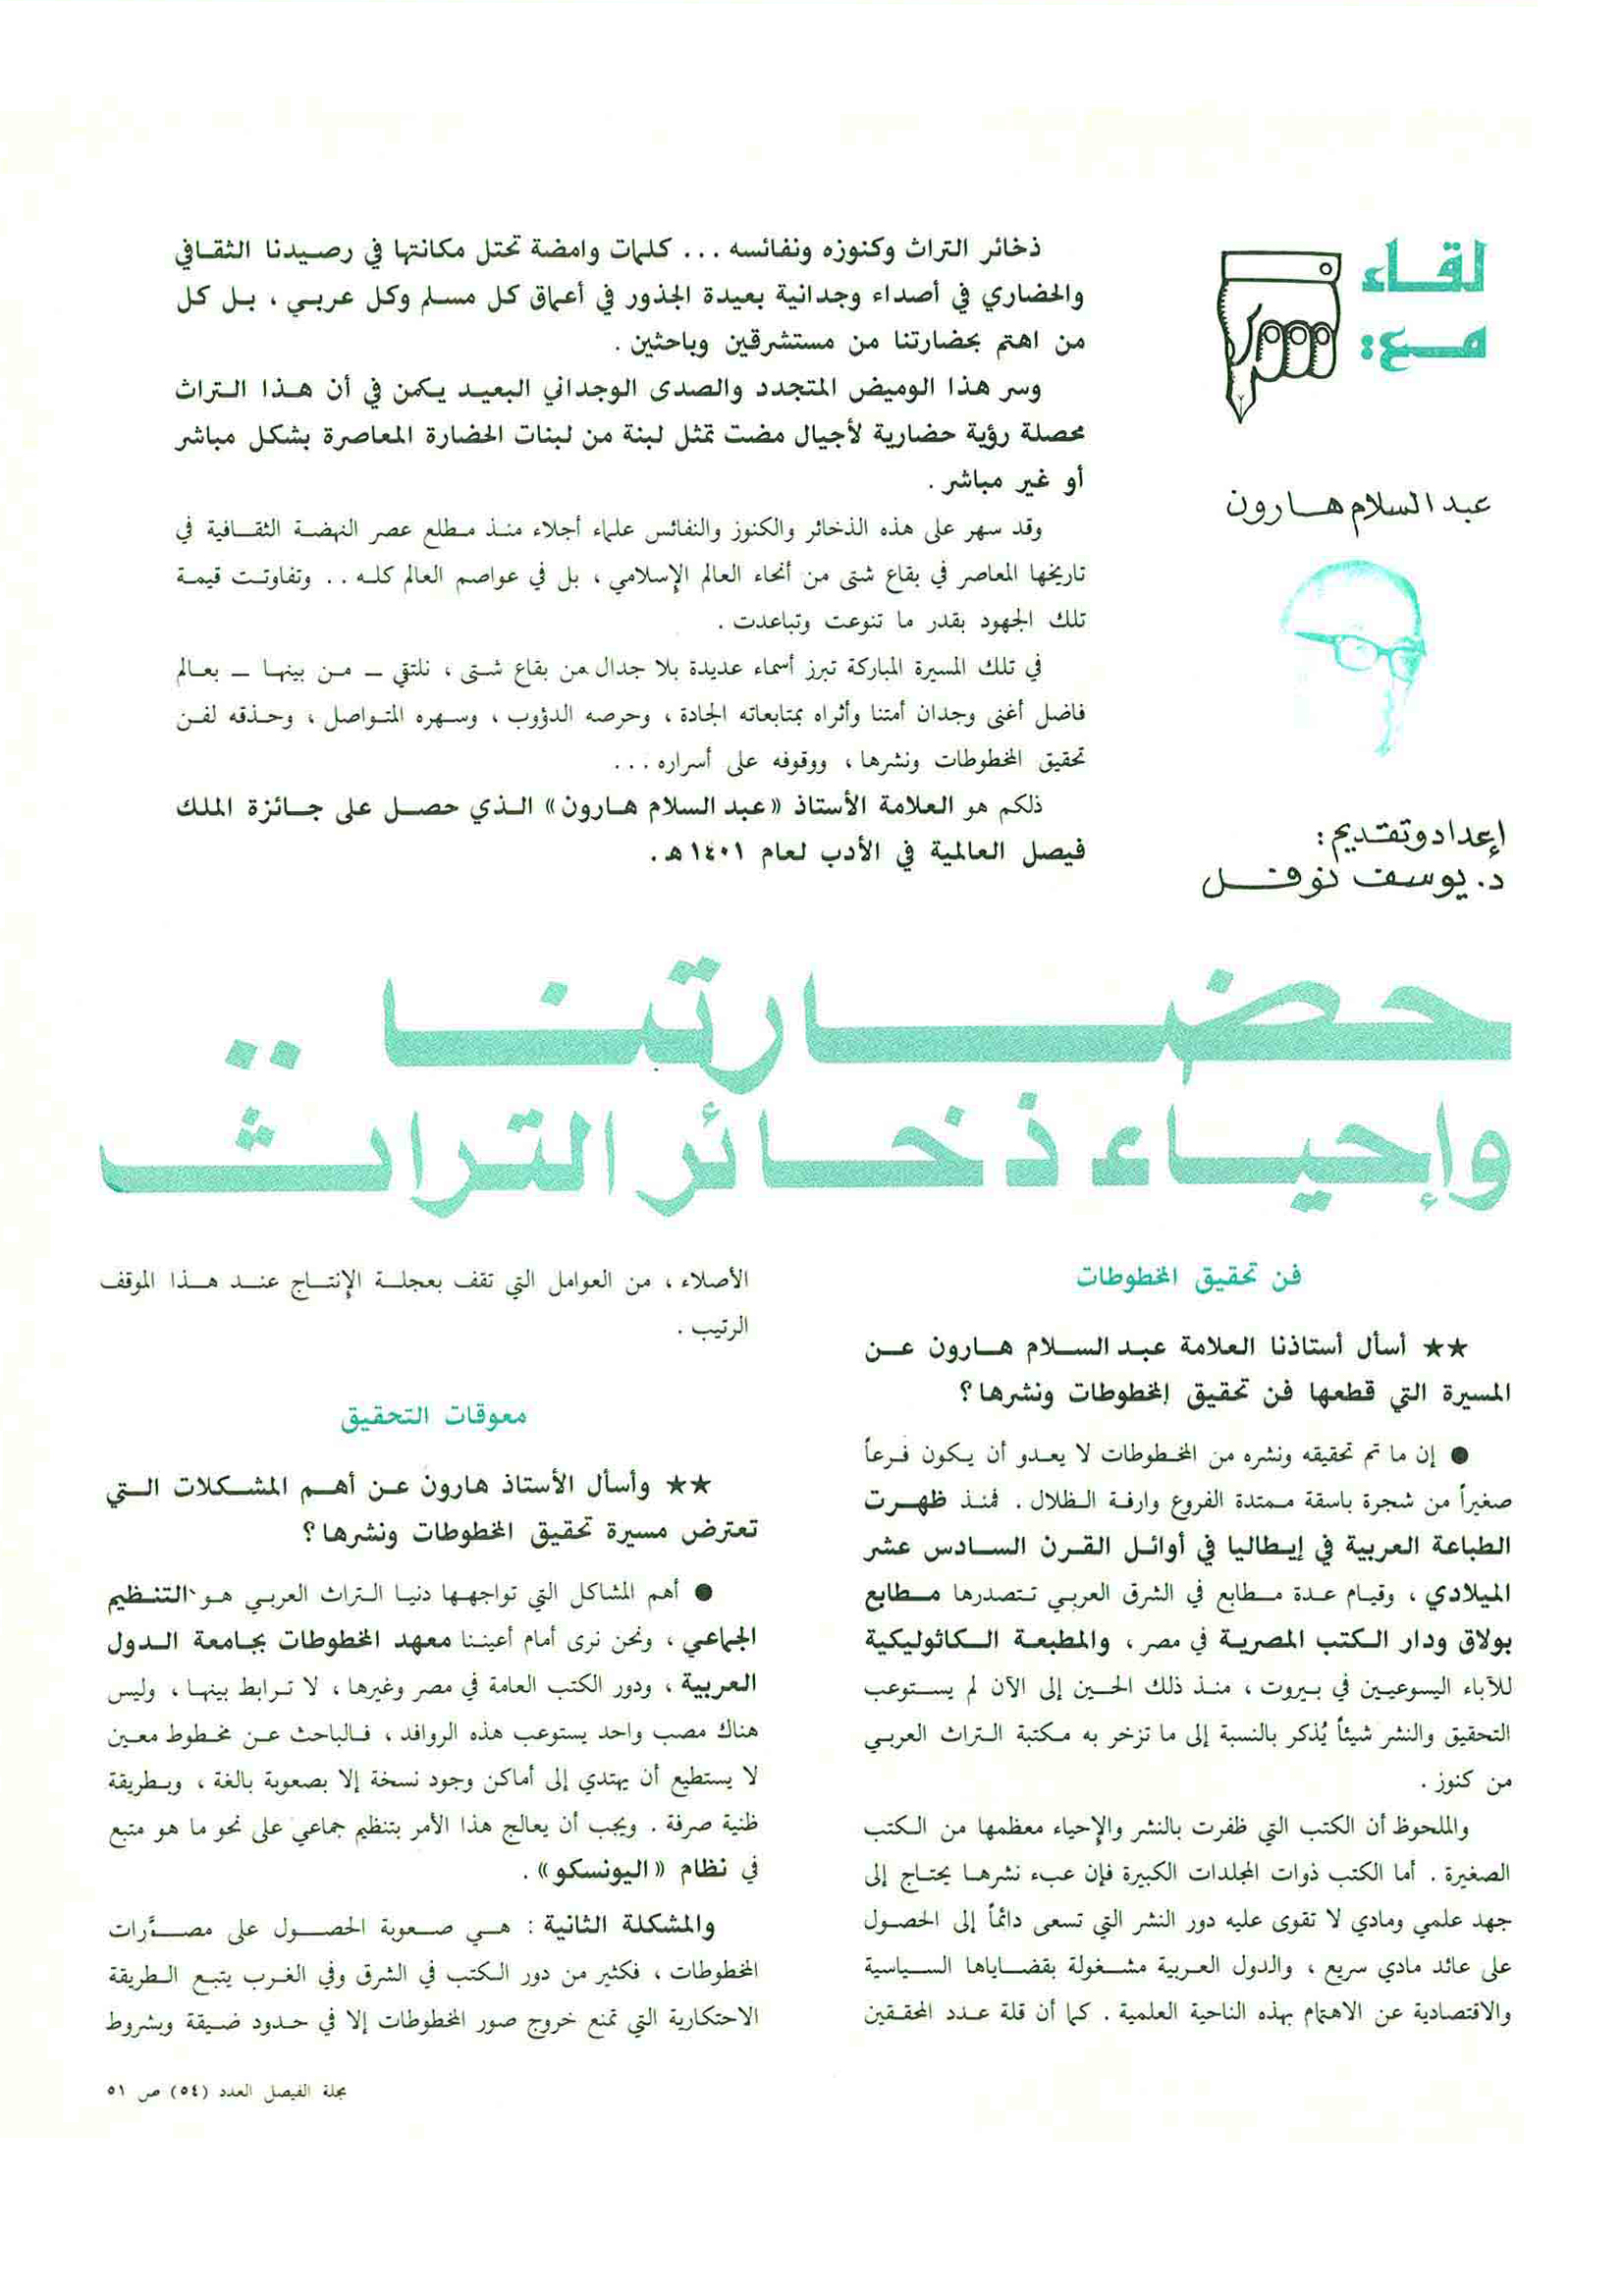 لقاء
مع:
عبد السلام هارون
إعداد وتقديم:
د. يوسف نوفل
ذخائر التراث وكنوزه ونفائسه ... كلمات وامضة تحتل مكانتها في رصيدنا الثقافي
والحضاري في أصداء وجدانية بعيدة الجذور في أعماق كل مسلم وكل عربي ، بل كل
من اهتم بحضارتنا من مستشرقين وباحثين .
وسر هذا الوميض المتجدد والصدى الوجداني البعيد يكمن في أن هذا التراث
محصلة رؤية حضارية لأجيال مضت تمثل لبنة من لبنات الحضارة المعاصرة بشكل مباشر
أو غير مباشر .
وقد سهر على هذه الذخائر والكنوز والنفائس علماء أجلاء منذ مطلع عصر النهضة الثقافية في
تاريخها المعاصر في بقاع شتى من أنحاء العالم الإسلامي ، بل في عواصم العالم كله .. وتفاوتت قيمة
تلك الجهود بقدر ما تنوعت وتباعدت .
في تلك المسيرة المباركة تبرز أسماء عديدة بلا جدال من بقاع شتى ، نلتقي ــ من بينها ــ بعالم
فاضل أغنى وجدان أمتنا وأثراه بمتابعاته الجادة ، وحرصه الدؤوب ، وسهره المتواصل ، وحذقه لفن
تحقيق المخطوطات ونشرها ، ووقوفه على أسراره ...
ذلكم هو العلامة الأستاذ «عبد السلام هارون» الذي حصل على جائزة الملك
فيصل العالمية في الأدب لعام ١٤٠١هـ .
حضارتنا ..
وإحياء ذخائر التراث
فن تحقيق المخطوطات
★★ أسأل أستاذنا العلامة عبد السلام هارون عن
المسيرة التي قطعها فن تحقيق المخطوطات ونشرها ؟
● إن ما تم تحقيقه ونشره من المخطوطات لا يعدو أن يكون فرعاً
صغيراً من شجرة باسقة ممتدة الفروع وارفة الظلال . فمنذ ظهرت
الطباعة العربية في إيطاليا في أوائل القرن السادس عشر
الميلادي ، وقيام عدة مطابع في الشرق العربي تتصدرها مطابع
بولاق ودار الكتب المصرية في مصر ، والمطبعة الكاثوليكية
للآباء اليسوعيين في بيروت ، منذ ذلك الحين إلى الآن لم يستوعب
التحقيق والنشر شيئاً يُذكر بالنسبة إلى ما تزخر به مكتبة التراث العربي
من كنوز .
والملحوظ أن الكتب التي ظفرت بالنشر والإحياء معظمها من الكتب
الصغيرة . أما الكتب ذوات المجلدات الكبيرة فإن عبء نشرها يحتاج إلى
جهد علمي ومادي لا تقوى عليه دور النشر التي تسعى دائماً إلى الحصول
على عائد مادي سريع ، والدول العربية مشغولة بقضاياها السياسية
والاقتصادية عن الاهتمام بهذه الناحية العلمية . كما أن قلة عدد المحققين
الأصلاء ، من العوامل التي تقف بعجلة الإنتاج عند هذا الموقف
الرتيب .
معوقات التحقيق
★★ وأسأل الأستاذ هارون عن أهم المشكلات التي
تعترض مسيرة تحقيق المخطوطات ونشرها ؟
● أهم المشاكل التي تواجهها دنيا التراث العربي هو التنظيم
الجماعي ، ونحن نرى أمام أعيننا معهد المخطوطات بجامعة الدول
العربية ، ودور الكتب العامة في مصر وغيرها ، لا ترابط بينها ، وليس
هناك مصب واحد يستوعب هذه الروافد ، فالباحث عن مخطوط معين
لا يستطيع أن يهتدي إلى أماكن وجود نسخة إلا بصعوبة بالغة ، وبطريقة
ظنية صرفة . ويجب أن يعالج هذا الأمر بتنظيم جماعي على نحو ما هو متبع
في نظام «اليونسكو» .
والمشكلة الثانية : هي صعوبة الحصول على مصدَّرات
المخطوطات ، فكثير من دور الكتب في الشرق وفي الغرب يتبع الطريقة
الاحتكارية التي تمنع خروج صور المخطوطات إلا في حدود ضيقة وبشروط
مجلة الفيصل العدد (٥٤) ص ٥١